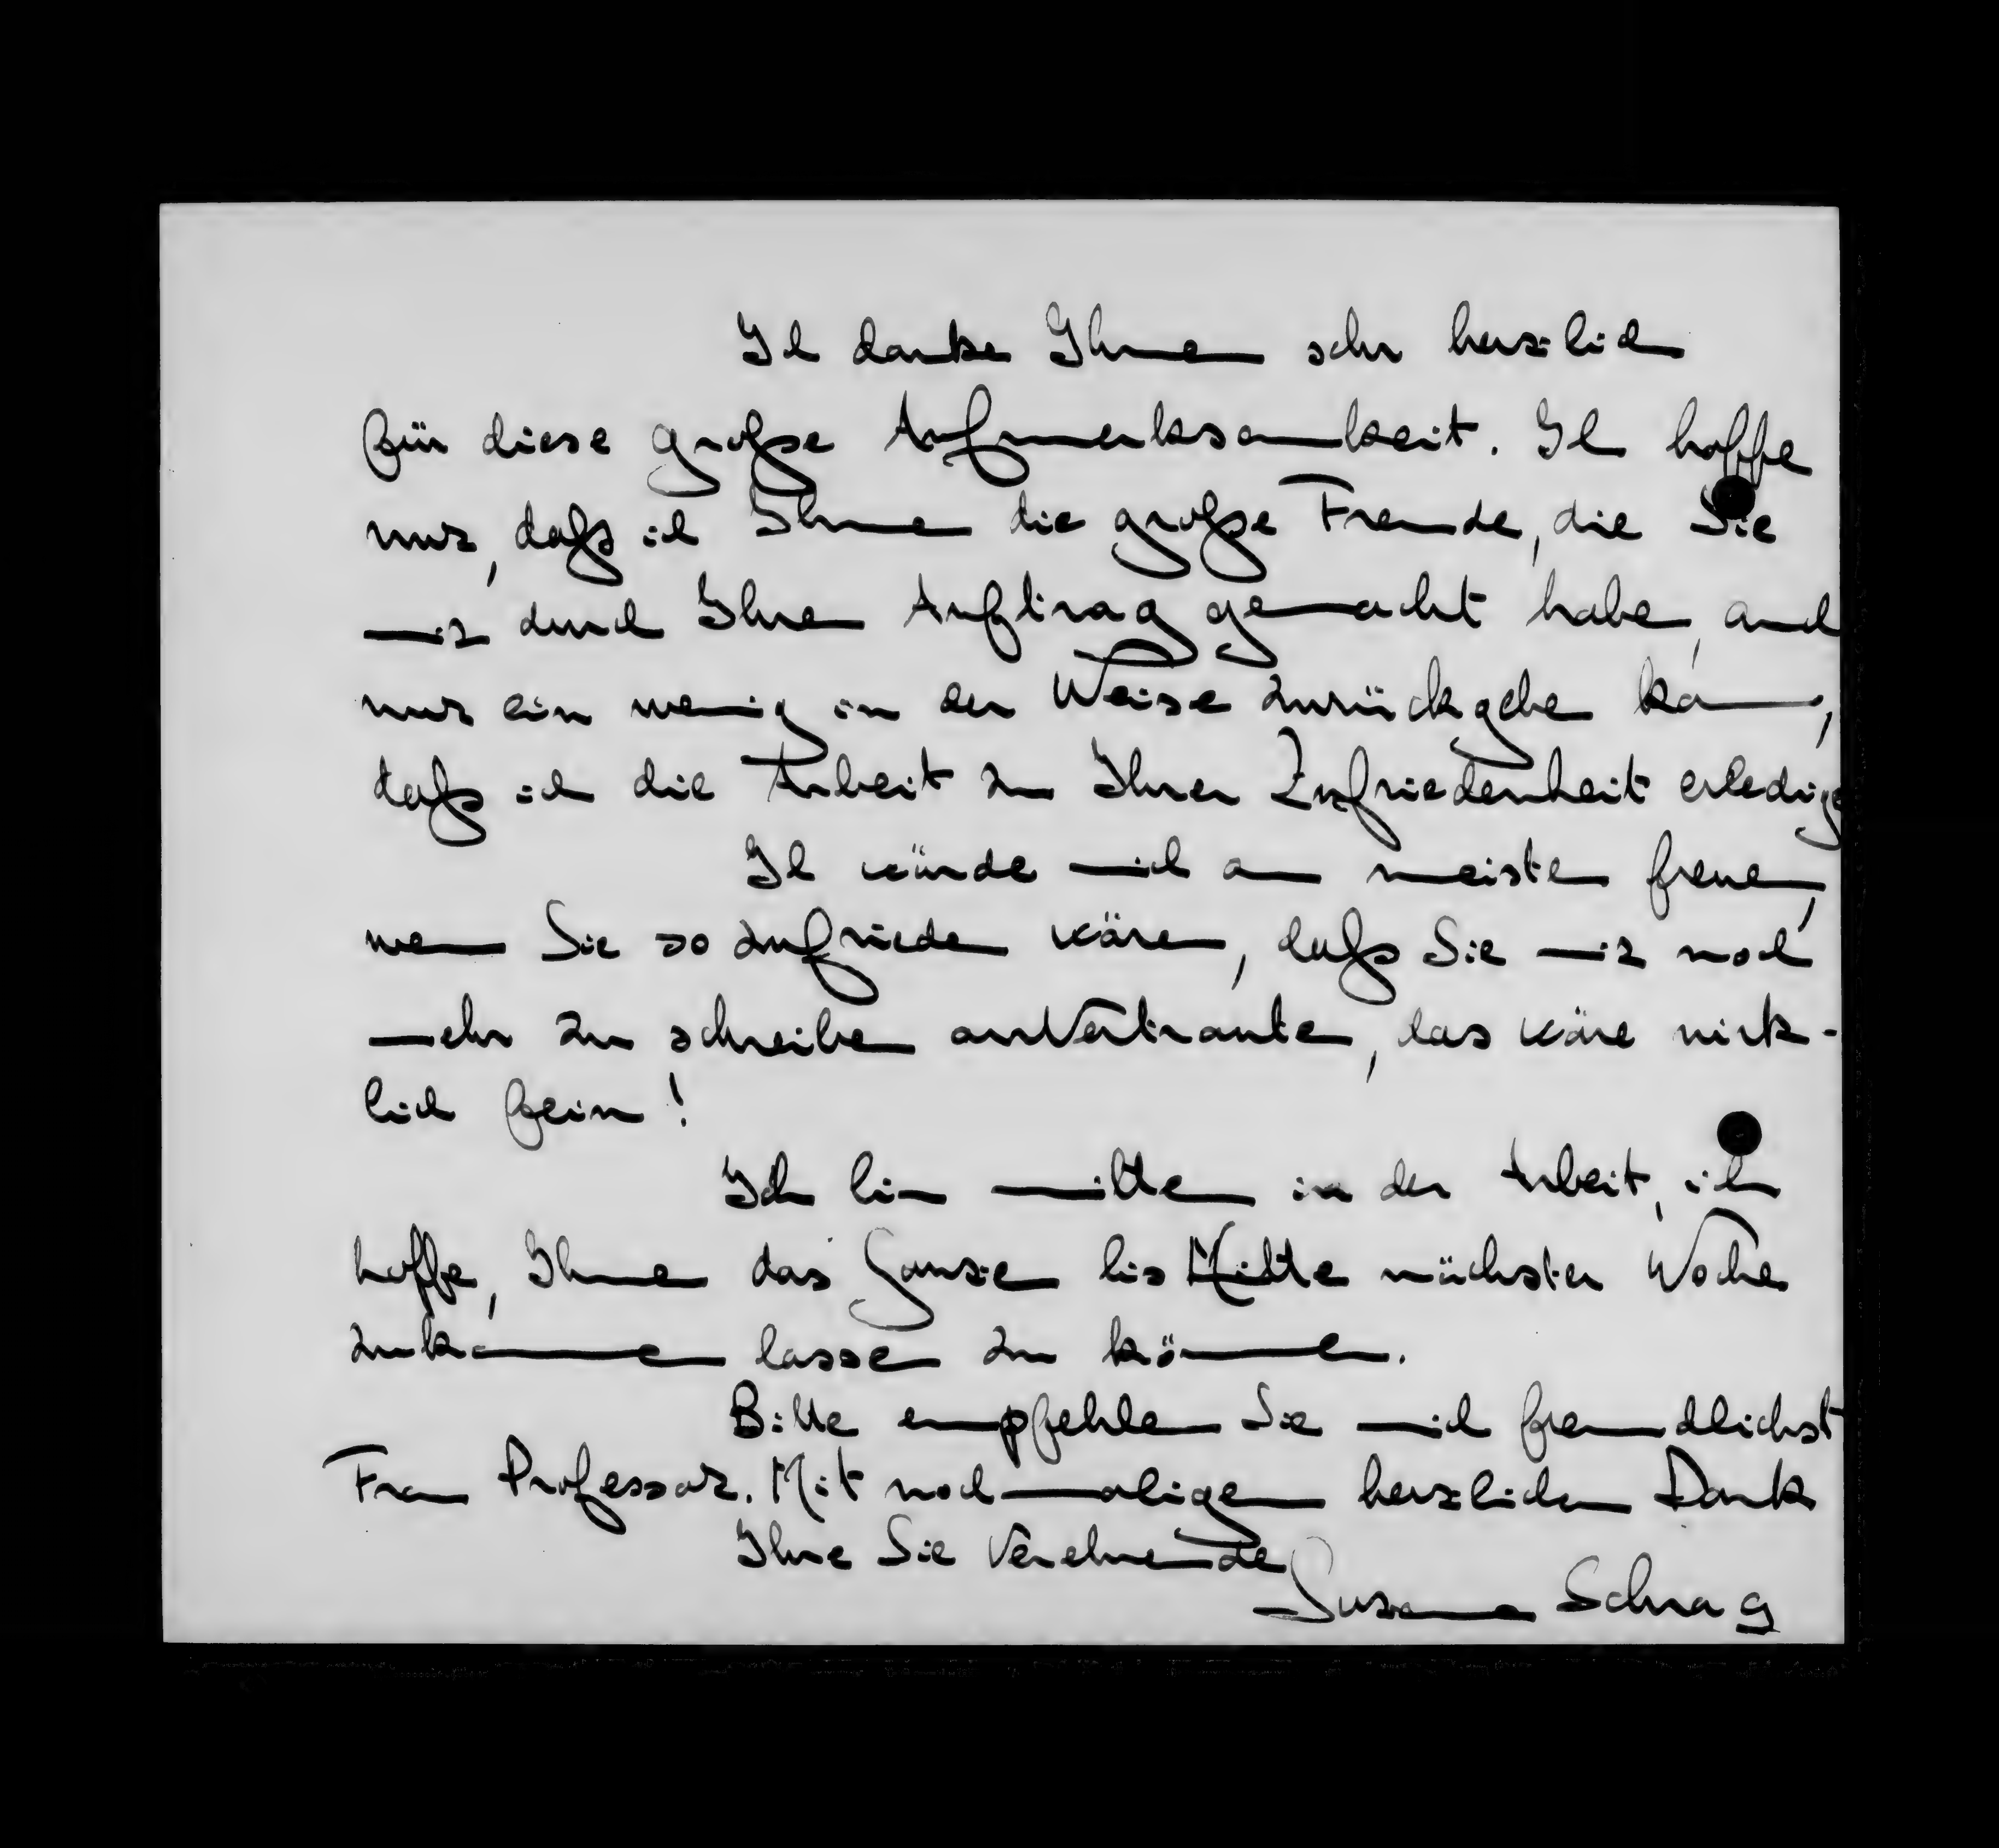 Ich danke Ihnen sehr herzlich
für diese große Aufmerksamkeit. Ich hoffe
nur, daß ich Ihnen die große Freude, die Sie
mir durch Ihren Auftrag gemacht haben, auch
nur ein wenig in der Weise zurückgeben kann,
daß ich die Arbeit zu Ihrer Zufriedenheit erledige
Ich würde mich am meisten freuen,
wenn Sie so zufrieden wären, daß Sie mir noch
mehr zu schreiben anvertrauten, das wäre wirk-
lich fein!
Ich bin mitten in der Arbeit, ich
hoffe, Ihnen das Ganze bis Mitte nächster Woche
zukommen lassen zu können.
Bitte empfehlen Sie mich freundlichst
Frau Professor. Mit nochmaligem herzlichen Dank
Ihre Sie verehrende
Susanna Schrag